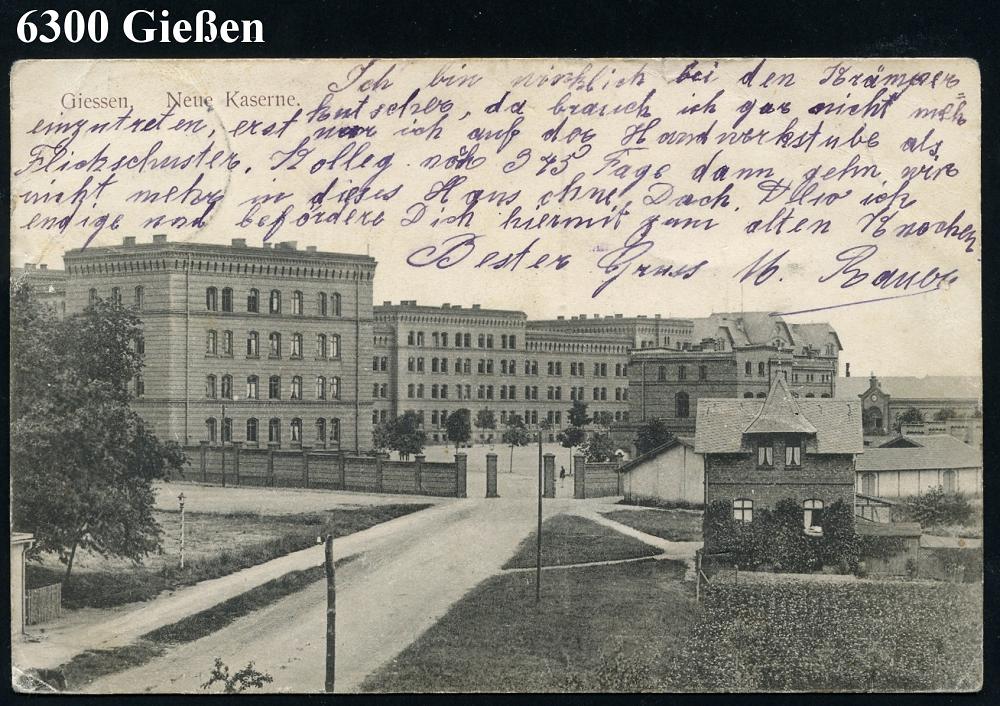 6300 Gießen
Giessen, Neue Kaserne.
Ich bin wirklich bei den Krämper=
kutscher, da brauch ich gar nicht meh
einzutreten, erst war ich auf der Handwerkstube als
Flickschuster. Kolleg noch 375 Tage dann gehn wir
nicht mehr in dieses Haus ohne Dach. Also ich
endige und befördere Dich hiermit zum alten Knochen
Bester Gruss M. Bauer